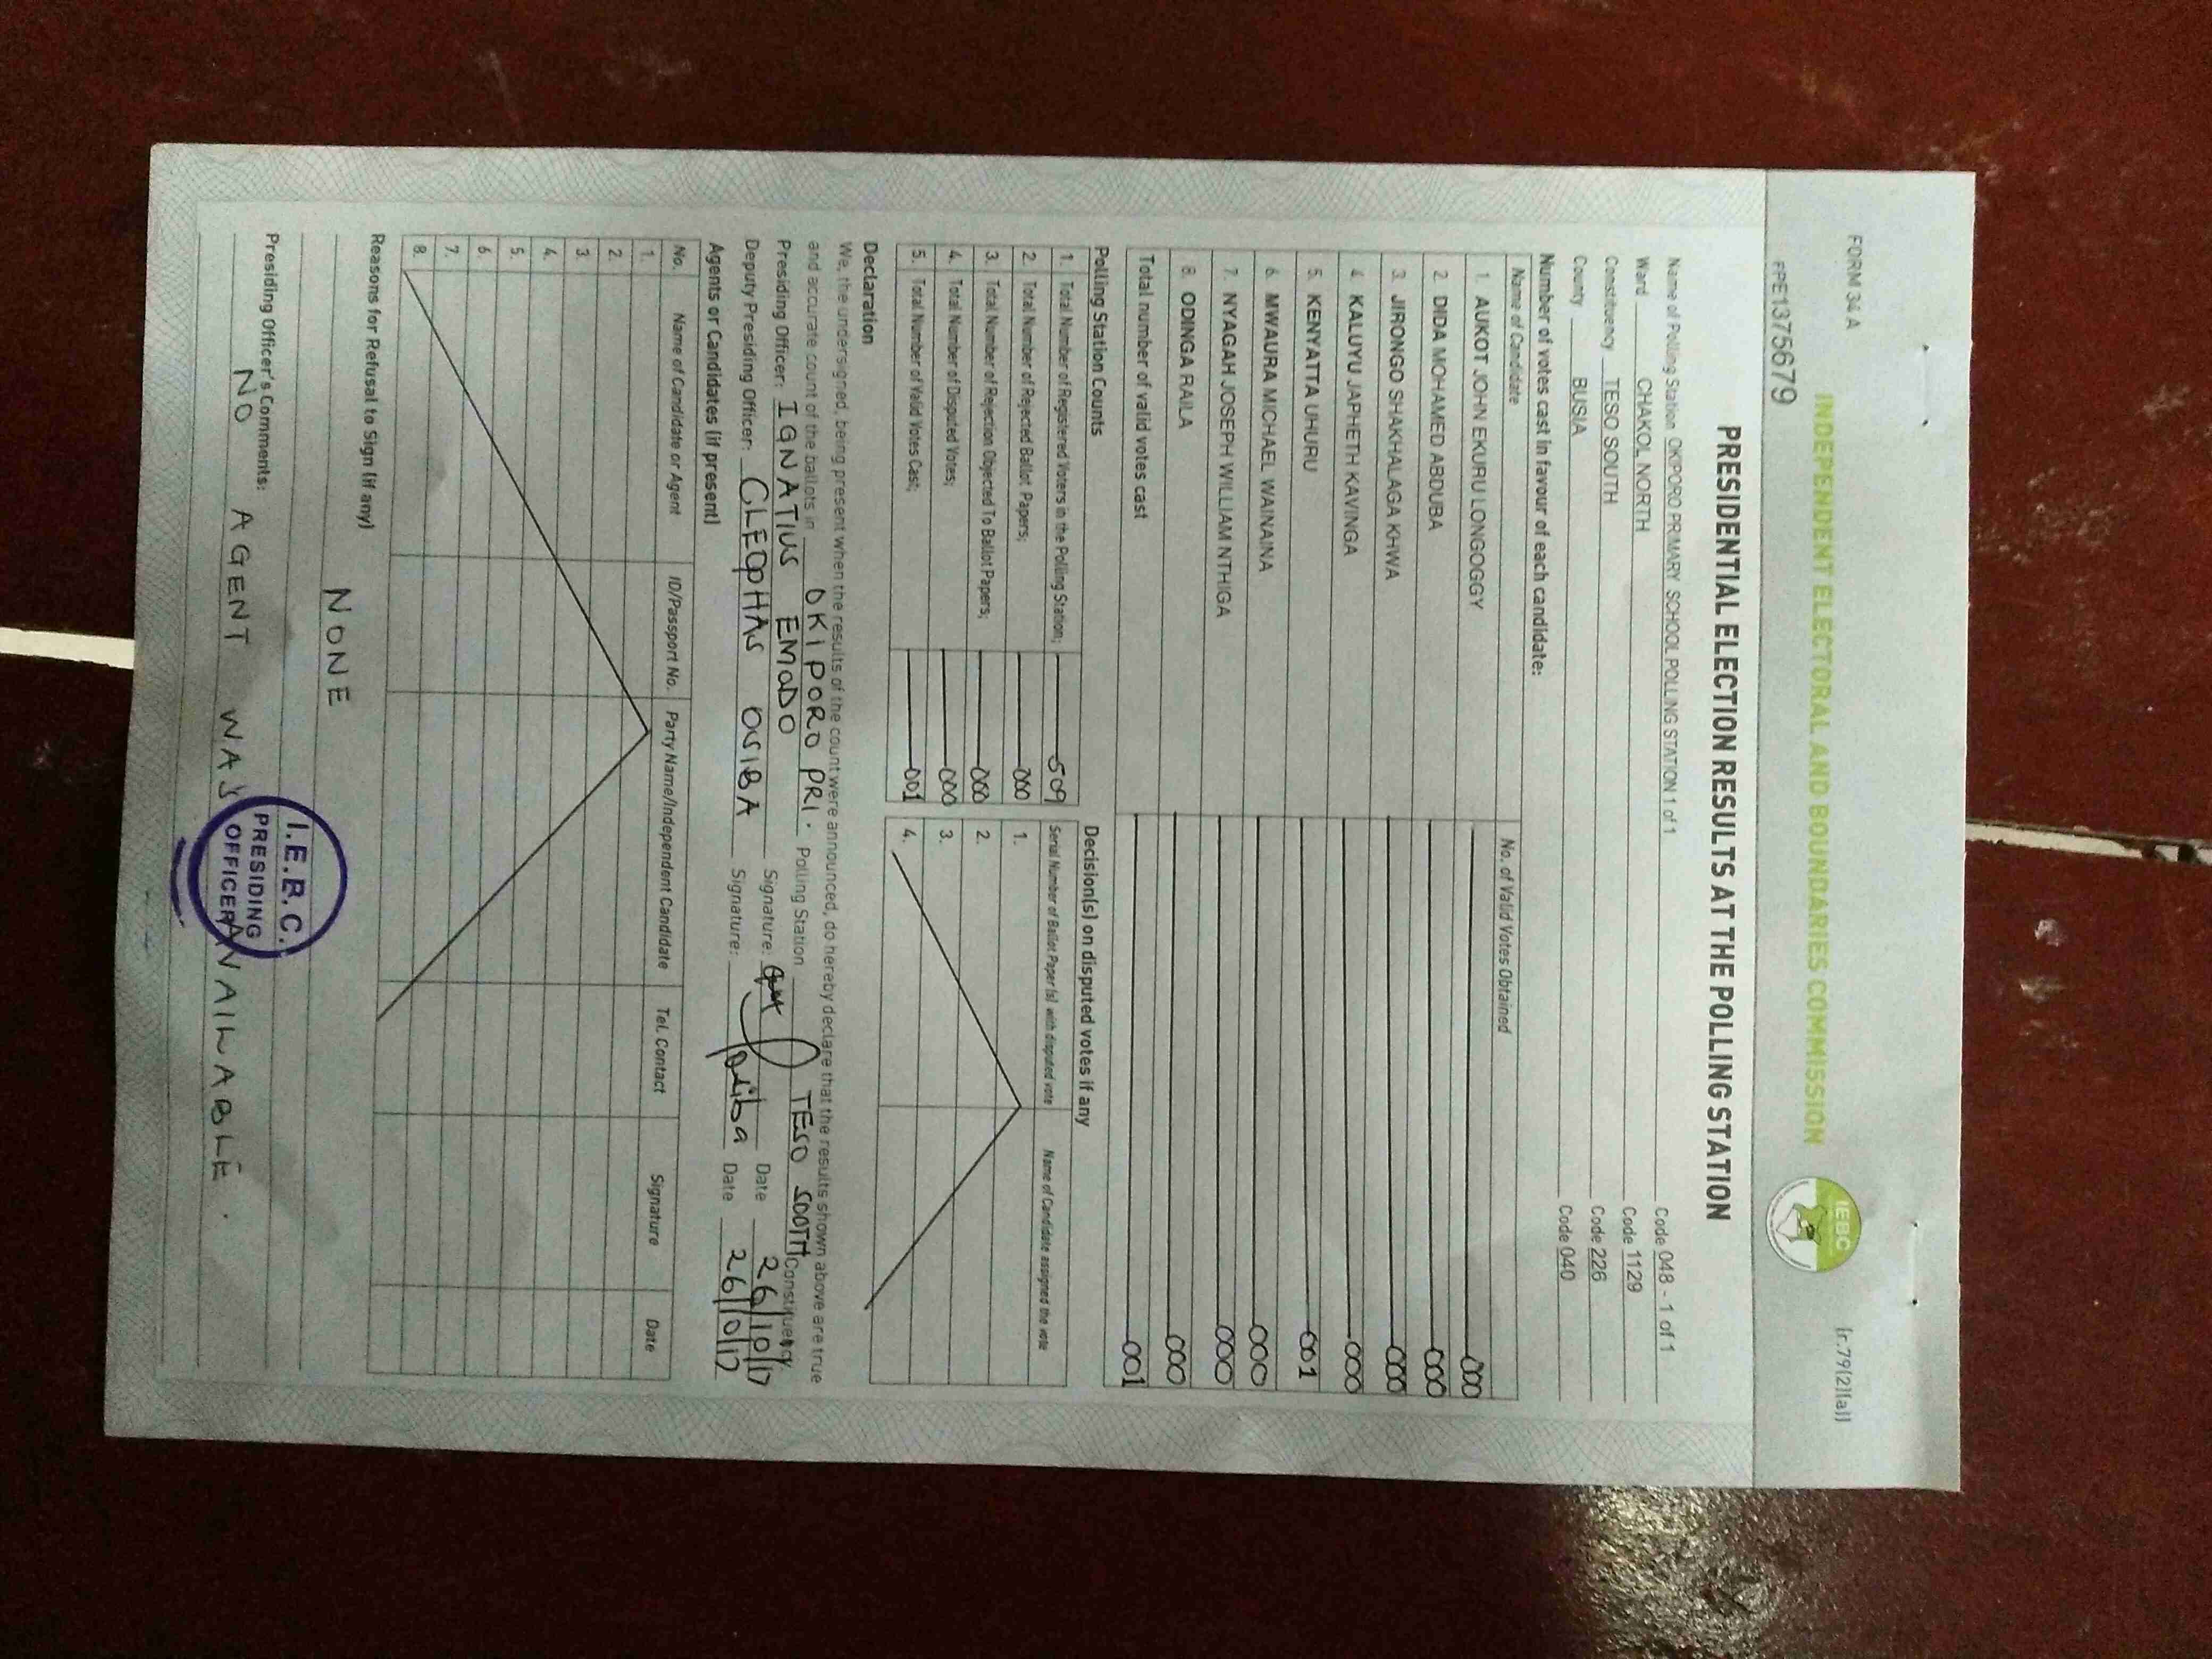 FORM 34 A
[r.79(2)(a)]
INDEPENDENT ELECTORAL AND BOUNDARIES COMMISSION
IEBC
PRESIDENTIAL ELECTION RESULTS AT THE POLLING STATION
Name of Polling Station OKIPORO PRIMARY SCHOOL POLLING STATION 1 of 1 Code 048 - 1 of 1
Ward CHAKOL NORTH Code 1129
Constituency TESO SOUTH Code 226
County BUSIA Code 040
Number of votes cast in favour of each candidate:
Name of Candidate No. of Valid Votes Obtained
1. AUKOT JOHN EKURU LONGOGGY 000
2. DIDA MOHAMED ABDUBA 000
3. JIRONGO SHAKHALAGA KHWA 000
4. KALUYU JAPHETH KAVINGA 000
5. KENYATTA UHURU 001
6. MWAURA MICHAEL WAINAINA 000
7. NYAGAH JOSEPH WILLIAM NTHIGA 000
8. ODINGA RAILA 000
Total number of valid votes cast 001
Polling Station Counts
1. Total Number of Registered Voters in the Polling Station; 509
2. Total Number of Rejected Ballot Papers; 000
3. Total Number of Rejection Objected To Ballot Papers; 000
4. Total Number of Disputed Votes; 000
5. Total Number of Valid Votes Cast; 001
Decision(s) on disputed votes if any
Serial Number of Ballot Paper (s) with disputed vote Name of Candidate assigned the vote
1.
2.
3.
4.
Declaration
We, the undersigned, being present when the results of the count were announced, do hereby declare that the results shown above are true
and accurate count of the ballots in OKIPORO PRI. Polling Station TESO SOUTH Constituency.
Presiding Officer: IGNATIUS EMODO Signature: Date 26/10/17
Deputy Presiding Officer: CLEOPHAS OSIBA Signature: Date 26/10/17
Agents or Candidates (if present)
No. Name of Candidate or Agent ID/Passport No. Party Name/Independent Candidate Tel. Contact Signature Date
1.
2.
3.
4.
5.
6.
7.
8.
Reasons for Refusal to Sign (if any)
NONE
Presiding Officer's Comments:
NO AGENT WAS AVAILABLE.
I.E.B.C.
PRESIDING
OFFICER